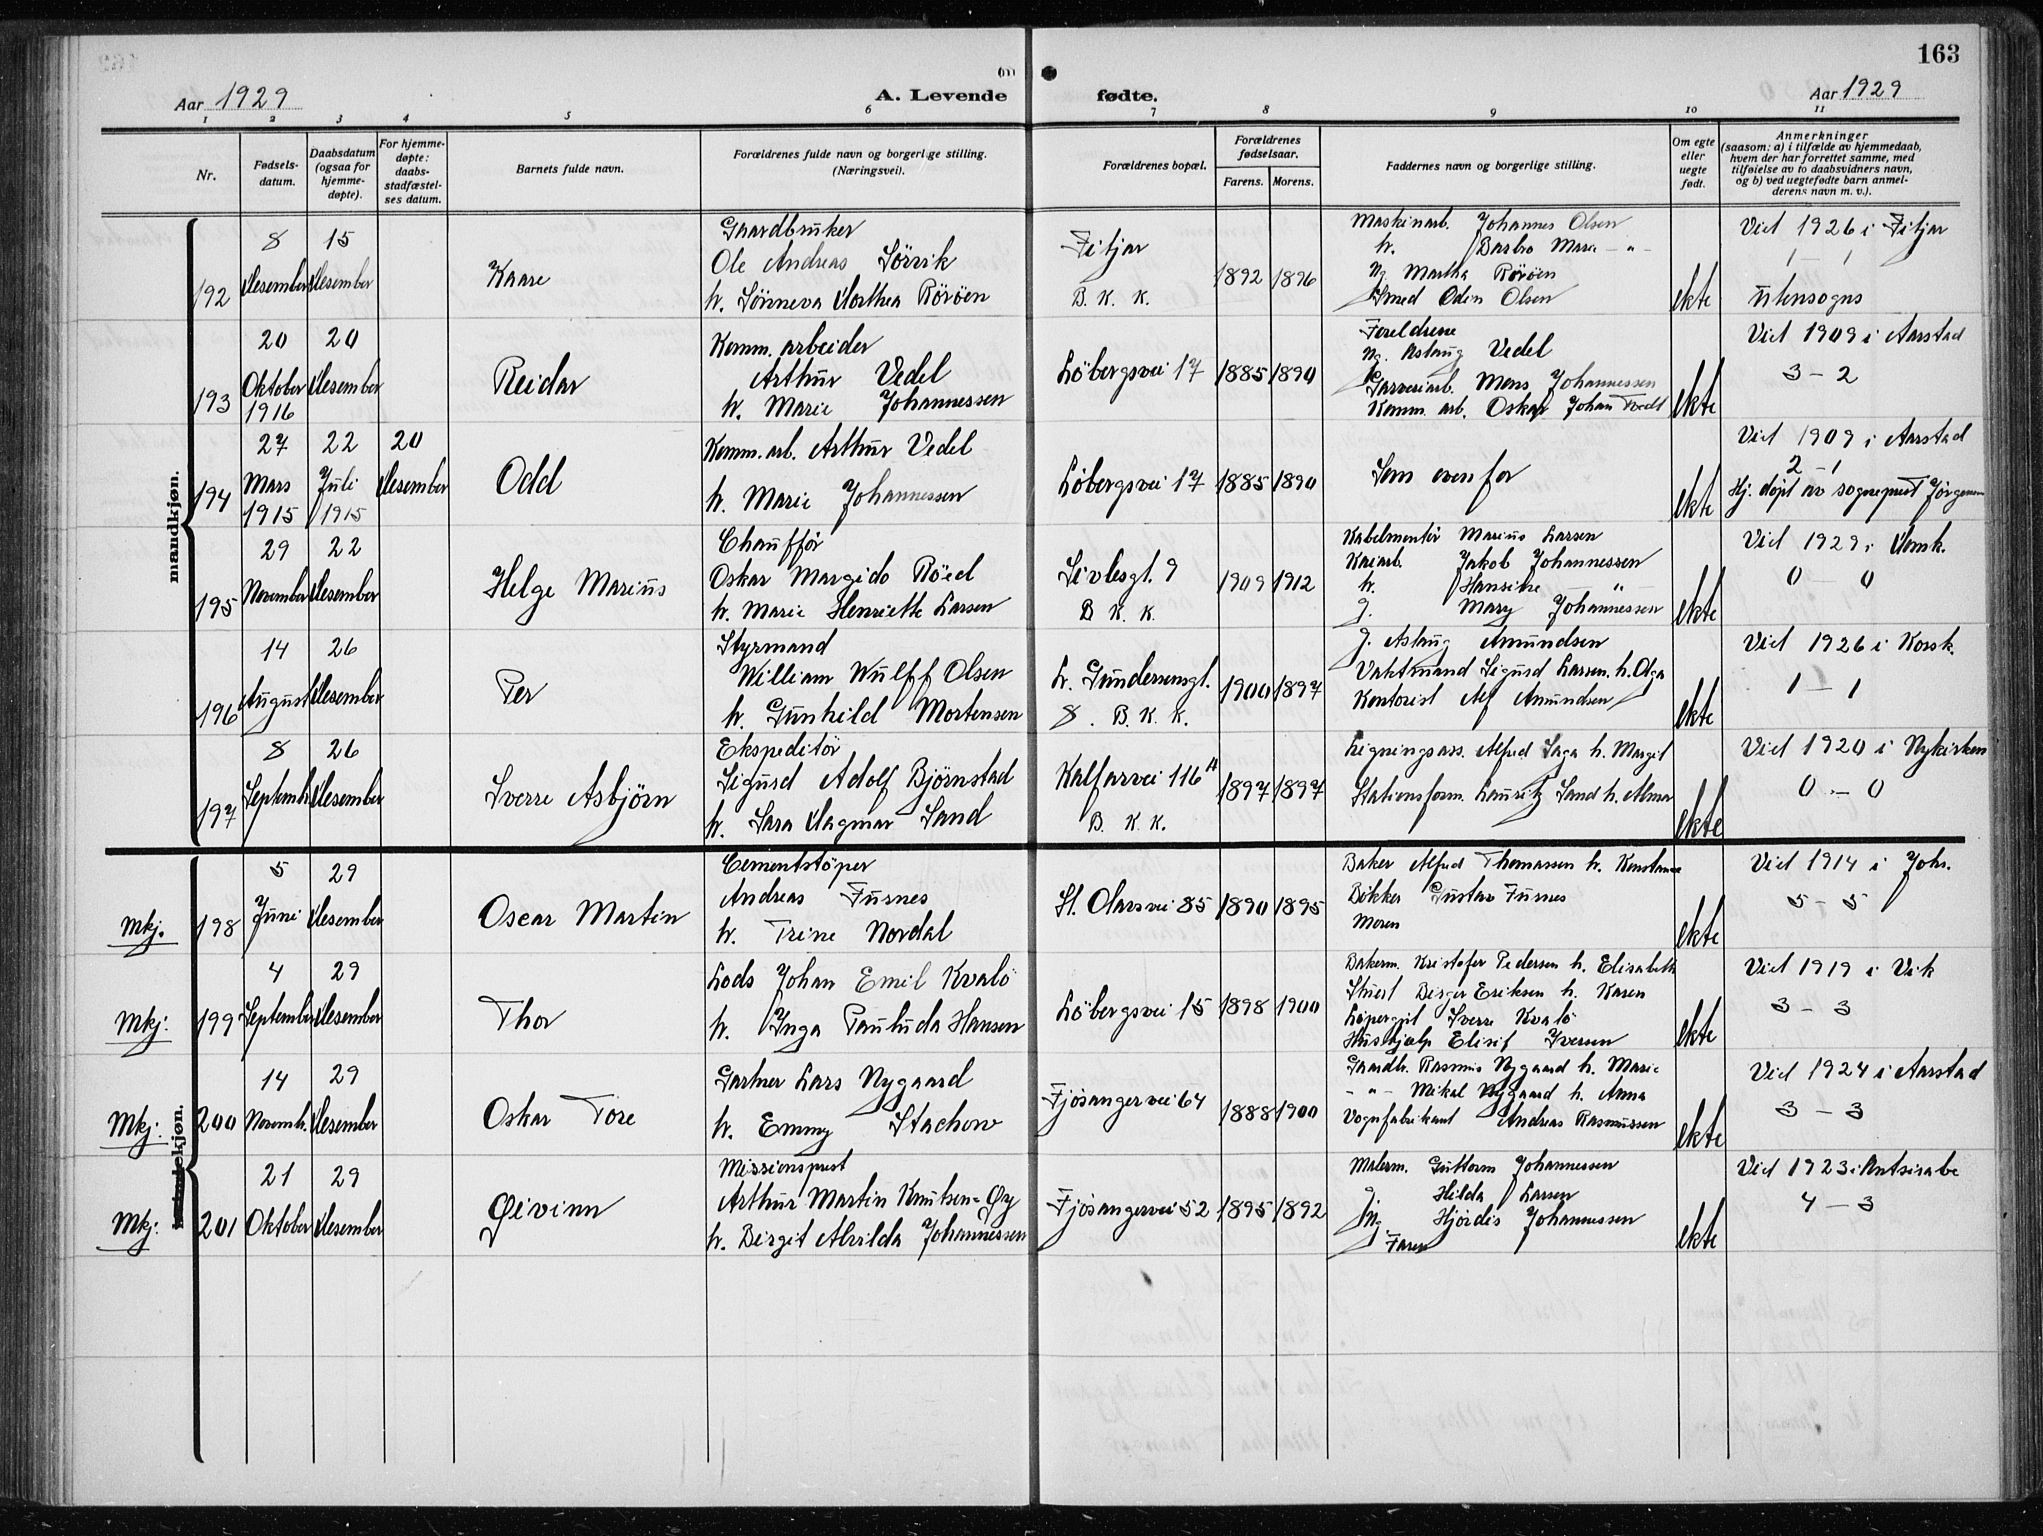 163
Aar 1929
A. Levende
fødte.
Aar 1929
1 2 3 4 5 6 7 8 9 10 11
Nr.
Fødsels-
datum.
Daabsdatum
(ogsaa for
hjemme-
døpte).
For hjemme-
døpte:
daabs-
stadfæstel-
ses datum.
Barnets fulde navn.
Forældrenes fulde navn og borgerlige stilling.
(Næringsvei).
Forældrenes bopæl.
Forældrenes
fødselsaar.
Farens. Morens.
Faddernes navn og borgerlige stilling.
Om egte
eller
uegte
født.
Anmerkninger
(saasom: a) i tilfælde av hjemmedaab,
hvem der har forrettet samme, med
tilføielse av to daabsvidners navn,
og b) ved uegtefødte barn anmel-
derens navn m. v.).
mandkjøn.
192
8
Desember
15
Desember
Kaare
Gaardbruker
Ole Andreas Sörvik
h. Sönneva Dorthea Röröen
Fitjar
B. K. K.
1892 1896
Maskinarb. Johannes Olsen
h. Barbro Marie - " -
Ug. Martha Röröen
Smed Odin Olsen
ekte
Viet 1926 i Fitjar
1 - 1
Utensogns
193
20
Oktober
1916
20
Desember
Reidar
Komm. arbeider
Arthur Vedel
h. Marie Johannessen
Löbergsvei 17
1885 1890
Foreldrene
Ug. Aslaug Vedel
Garveriarb. Mons Johannessen
Komm. arb. Oskar Johan Tvedt
ekte
Viet 1909 i Aarstad
3 - 2
194
27
Mars
1915
22
Juli
1915
20
Desember
Odd
Komm. arb. Arthur Vedel
h. Marie Johannessen
Löbergsvei 17
1885 1890
Som ovenfor
ekte
Viet 1909 i Aarstad
2 - 1
Hj. döpt av sogneprest Jørgensen
195
29
November
22
Desember
Helge Marius
Chauffør
Oskar Margido Röed
h. Marie Henriette Larsen
Sivlesgt. 9
B. K. K.
1909 1912
Kabelmontör Marius Larsen
Kaiarb. Jakob Johannessen
h. Hansine "
J. Mary Johannessen
ekte
Viet 1929 i Domk.
0 - 0
196
14
August
26
Desember
Per
Styrmand
William Wulff Olsen
h. Gunhild Mortensen
L. Gundersensgt.
8. B. K. K.
1900 1897
J. Aslaug Amundsen
Vaktmand Sigurd Larsen. h. Olga
Kontorist Alf Amundsen
ekte
Viet 1926 i Korsk.
1 - 1
197
8
Septemb.
26
Desember
Sverre Asbjörn
Ekspeditör
Sigurd Adolf Björnstad
h. Sara Dagmar Sand
Kalfarvei 116 A
B. K. K.
1897 1897
Ligningsass. Alfred Saga h. Margit
Stationsform. Lauritz Sand h. Alma
ekte
Viet 1920 i Nykirken
0 - 0
kvindekjøn.
Mkj.
198
5
Juni
29
Desember
Oscar Martin
Cementstöper
Andreas Fusnes
h. Trine Nordal
St. Olavsvei 85
1890 1895
Baker Alfred Thomassen h. Konstance
Bökker Gustav Fusnes
Moren
ekte
Viet 1914 i Johs.
5 - 5
Mkj:
199
4
September
29
Desember
Thor
Lods Johan Emil Kvalö
h. Inga Paulida Hansen
Löbergsvei 15
1898 1900
Bakerm. Kristofer Pedersen h. Elisabeth
Stuert Birger Eriksen h. Karen
Löpergut Sverre Kvalö
Hushjælp Elisif Iversen
ekte
Viet 1919 i Vik
3 - 3
Mkj:
200
14
Novemb.
29
Desember
Oskar Tore
Gartner Lars Nygaard
h. Emmy Stachow
Fjösangervei 64
1888 1900
Gaardbr. Rasmus Nygaard h. Marie
- " - Mikal Nygaard h. Anna
Vognfabrikant Andreas Rasmussen
ekte
Viet 1924 i Aarstad
3 - 3
Mkj:
201
21
Oktober
29
Desember
Øivinn
Missionsprest
Arthur Martin Knutsen-Øy
h. Birgit Alvilda Johannessen
Fjösangervei 52
1895 1892
Malerm. Guttorm Johannessen
J. Hilda Larsen
Ug. Hjördis Johannessen
Faren
ekte
Viet 1923 i Antsirabe
4 - 3